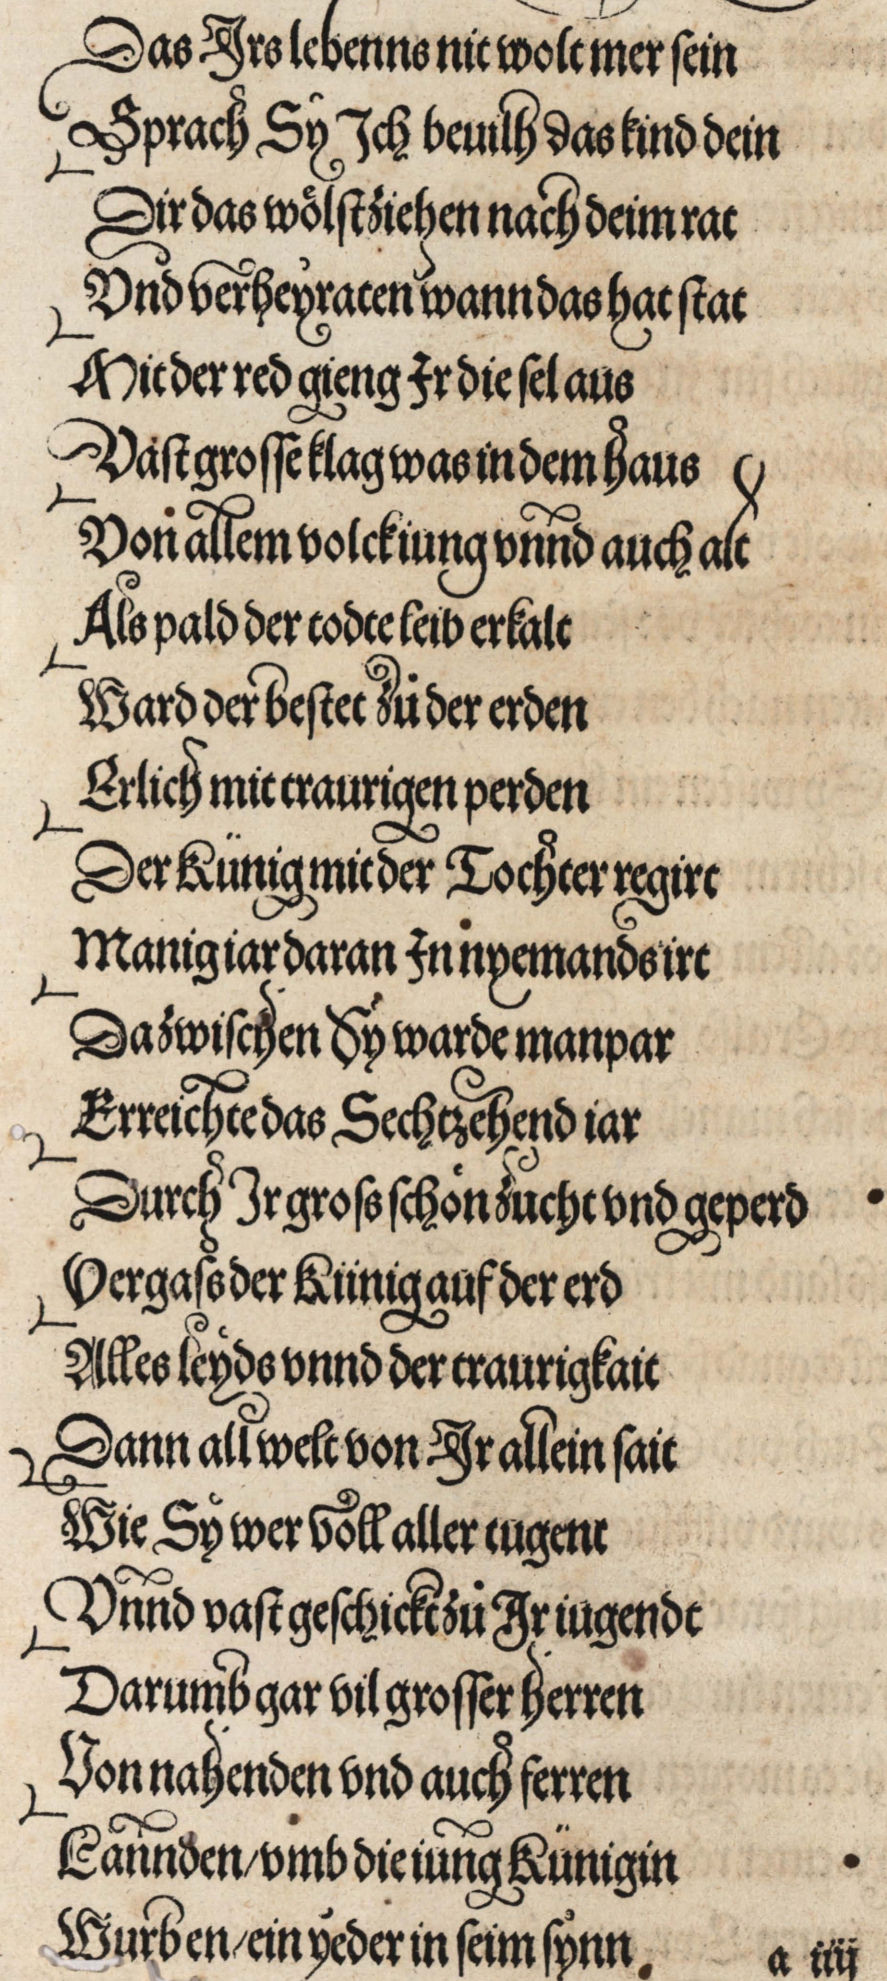 Das Irs lebenns nit wolt mer sein
Sprach Sy Ich beuilh das kind dein
Dir das wölst ziehen nach deim rat
Vnd verheyraten wann das hat stat
Mit der red gieng Ir die sel aus
Vast grosse klag was in dem haus
Von allem volck iung vnnd auch alt
Als pald der todte leib erkalt
Ward der bestet zů der erden
Erlich mit traurigen perden
Der Künig mit der Tochter regirt
Manig iar daran In nyemands irt
Dazwischen Sy warde manpar
Erreichte das Sechtzehend iar
Durch Ir gross schön zucht vnd geperd
Vergass der Künig auf der erd
Alles leyds vnnd der traurigkait
Dann all welt von Ir allein sait
Wie Sy wer voll aller tugent
Vnnd vast geschickt zů Ir iugendt
Darumb gar vil grosser herren
Von nahenden vnd auch ferren
Lannden/vmb die iung Künigin
Wurben/ein yeder in seim synn.
a iiij